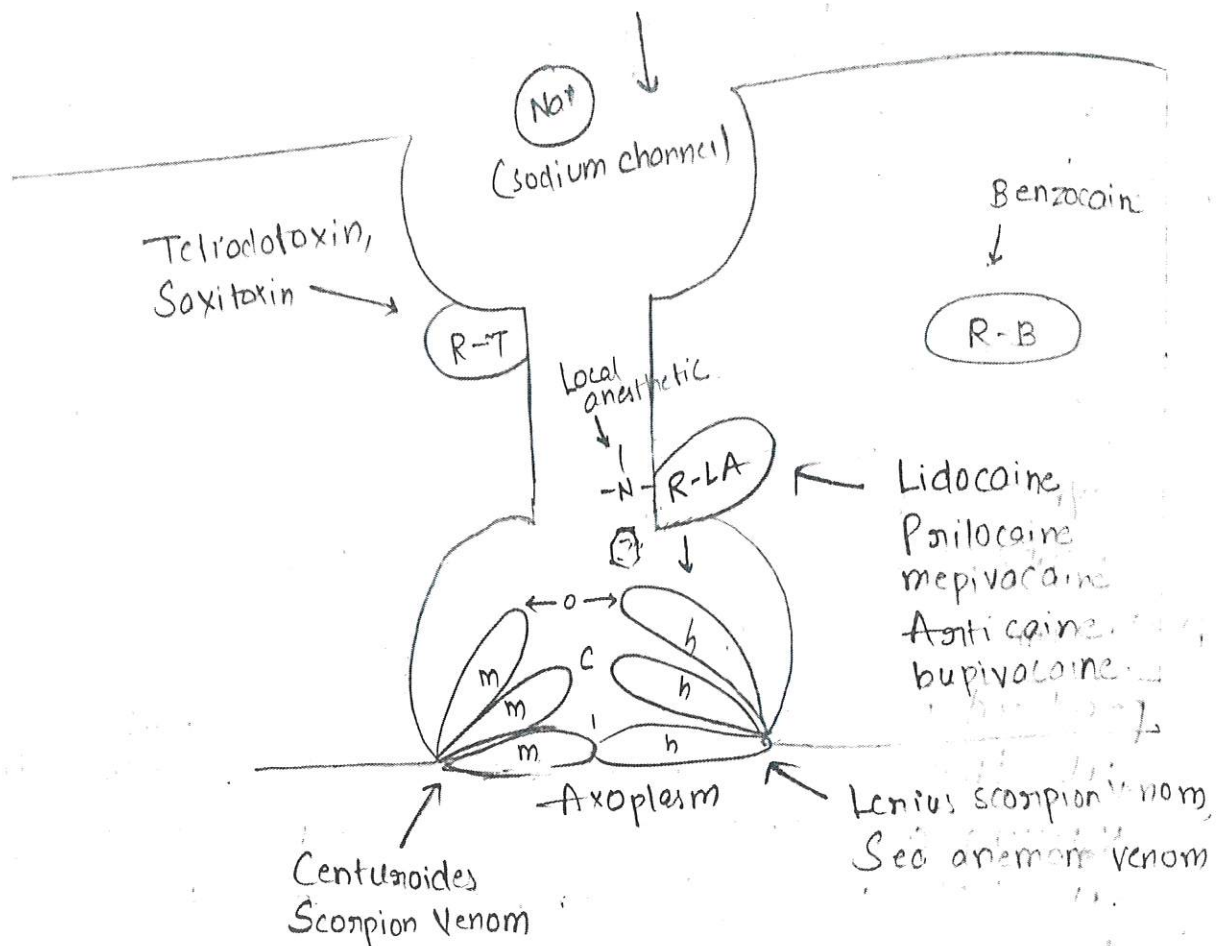 Na+
(sodium channel)
Benzocain
Tetrodotoxin,
Saxitoxin
R-T
R-B
Local
anesthetic
-N-
R-LA
Lidocaine
Prilocaine
mepivacaine
Articaine
bupivacaine
o
h
C
h
m
m
m
h
Axoplasm
Lenius scorpion venom,
Sea anemone venom
Centuroides
Scorpion Venom